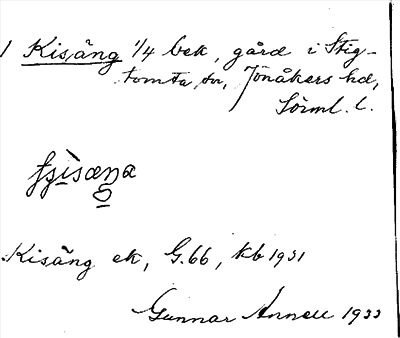 1 Kisäng 1/4 bek, gård i Stig-
tomta sn, Jönåkers hd,
Sörml. l.
Kisäng ek, G.66, kb 1931
Gunnar Annell 1933